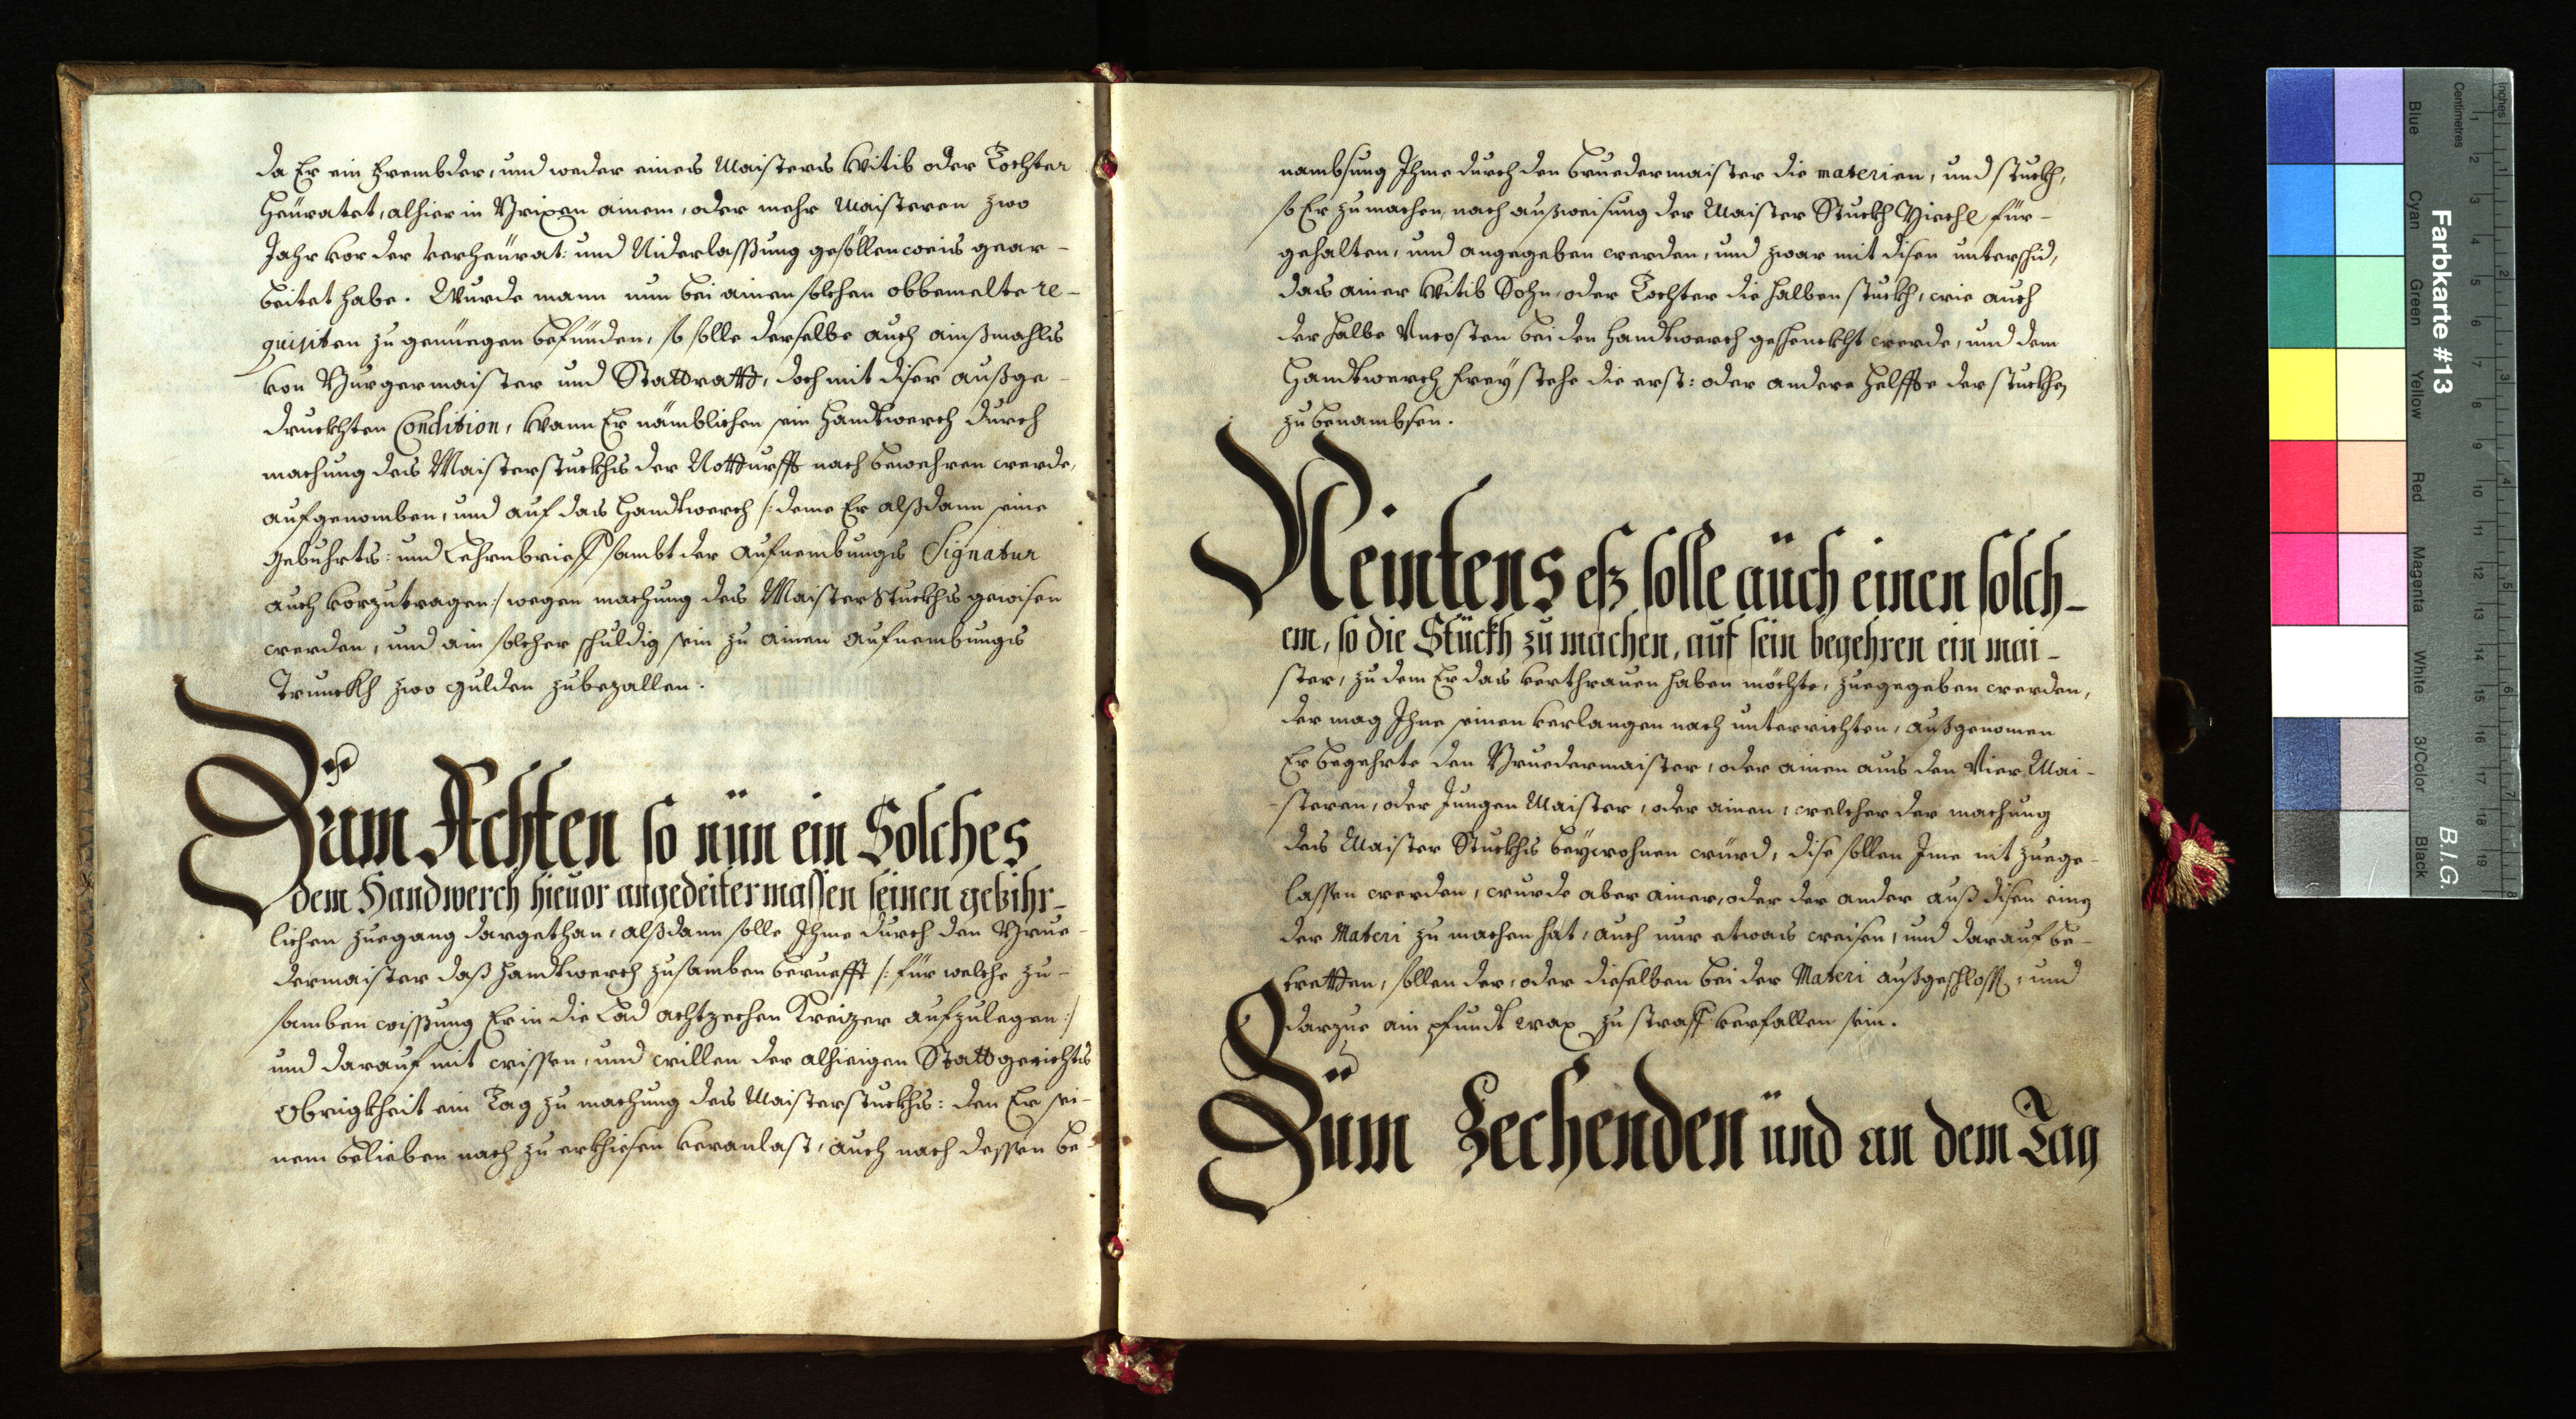 da Er ein frembder, und weder eines Maisters Witib oder Tochter
heüratet, alhier in Brixen ainem, oder mehr Maisteren zwo
Jahr vor der verheürat: und Niderlassung gesöllenweis gear-
beitet habe. Wurde mann nun bei ainen solchen obbemelte re-
quisiten zu genüegen befünden, so solle derselbe auch ainßmahls
von Burgermaister und Stattrath, doch mit diser außge-
druckhten Condition, wann Er nämblichen sein Handtwerch durch
machung des Maisterstuckhs der Notturfft nach bewehren werde,
aufgenomben, und auf das Handtwerch /: deme Er alßdann seine
geburhts: und Lehrnbrieff sambt der aufnembungs Signatur
auch vorzutragen :/ wegen machung des Maister Stuckhs gewisen
werden, und ain solcher schuldig sein zu ainen aufnembungs
Trunckh zwo gulden zubezallen.
Zum Achten so nün ein Solches
dem Handwerch hieuor angedeitermassen seinen gebihr-
lichen zuegang dargethan, alßdann solle Ihme durch den Brue-
dermaister daß Handtwerch zusamben berueft /: für welche zu-
samben wissung Er in die Lad achtzechen Kreizer aufzulegen :/
und darauf mit wissen, und willen der alhieigen Stattgerichts
Obrigkheit ein Tag zu machung des Maisterstuckhs: den Er sei-
nem belieben nach zu erkhiesen veranlast, auch nach dessen be-
nambsung Ihme durch den Bruedermaister die materien, und stuckh,
so Er zu machen, nach außweisung der Maister Stuckh Biechl, für-
gehalten, und angegeben werden, und zwar mit disen unterschid,
das ainer Witib Sohn, oder Tochter die halben stuckh, wie auch
der halbe Uncosten bei den Handtwerch geschenckht werde, und dem
Handtwerch frey stehe die erst: oder andere helffte der stuckhen
zu benambsen.
Neintens eß solle aüch einen solch-
em, so die Stückh zu machen, auf sein begehren ein mai-
ster, zu dem Er das verthrauen haben möchte, zuegegeben werden,
der mag Ihne seinen verlangen nach unterrichten, außgenomen
Er begehrte den Bruedermaister, oder ainen aus den Vier Mai-
steren, oder Jungen Maister, oder ainen, welcher der machung
des Maister Stuckhs beywohnen würd, dise sollen Ime nit zuege-
lassen werden, wurde aber ainer, oder der ander auß disen einen
der Materi zu machen hat, auch nur etwas weisen, und darauf be-
tretten, sollen der, oder dieselben bei der Materi außgeschloss, und
darzue ain pfundt wax zu straff verfallen sein.
Züm Zechenden ünd an dem Tag
Farbkarte #13
B.I.G.
Blue
Cyan
Green
Yellow
Red
Magenta
White
3/Color
Black
Centimetres
Inches